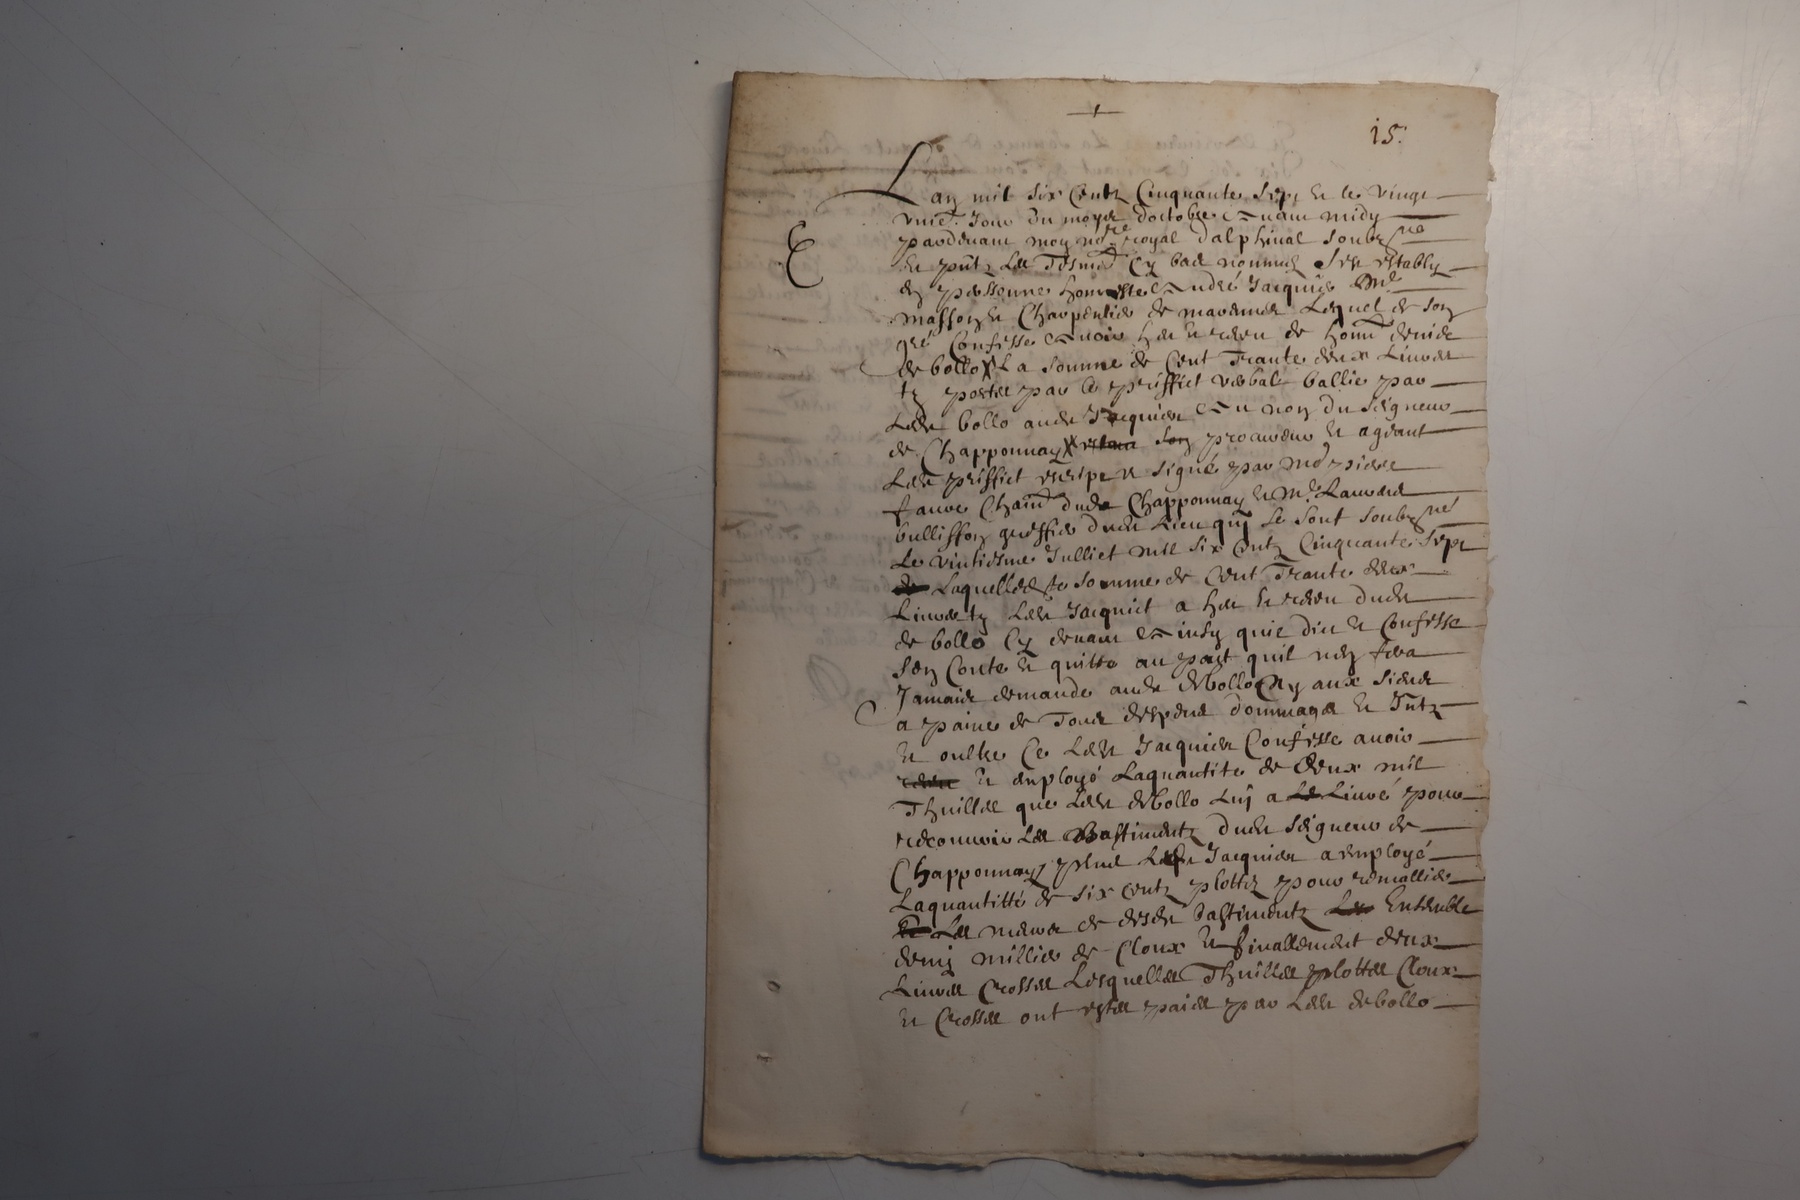 15.
Lan mil six centz cinquante sept et le vingt
unie. jour du moys doctobre avant midy
pardevant moy no.re royal dalphinal soubz.né
et pntz les tesmd cy bas nommez sest estably
en personne honneste André Jacquier Me
masson et charpentier de marennes lequel de son
gré confesse avoir heu et receu de honn denis
de bollo La somme de cent trante deux livres
tz portee par le priffict verbal ballie par
led bollo aud Jacquier au non du seigneur
de Chapponnay son procureur et ageant
led priffict escript et signé par Mre piere
favre Chain dud Chapponnay et Me Laurens
bullisson greffier dud lieu quj se sont soubz.nés
le vintiesme Julliet mil six centz cinquante sept
laquelle somme de cent trante deux
livres tz led Jacquiet a heu et receu dud
de bollo cy devant ainsy quil dit et confesse
sen conte et quitte au pact quil nen fera
Jamais demande aud debollo ny aux siens
a paine de tous despens dommages et Intz
et oultre ce led Jacquier confesse avoir
et employé la quantite de deux mil
Thuilles que led debollo luj a livré pour
recouvrir les Bastimentz dud seigneur de
Chapponnay plus led Jacquier a employé
la quantitté de six centz plottez pour remallier
les murs de desd bastimentz Ensemble
demj millier de cloux et finallement deux
livres crosses lesquelles Thuilles plottes cloux
et crosses ont estes paies par led debollo